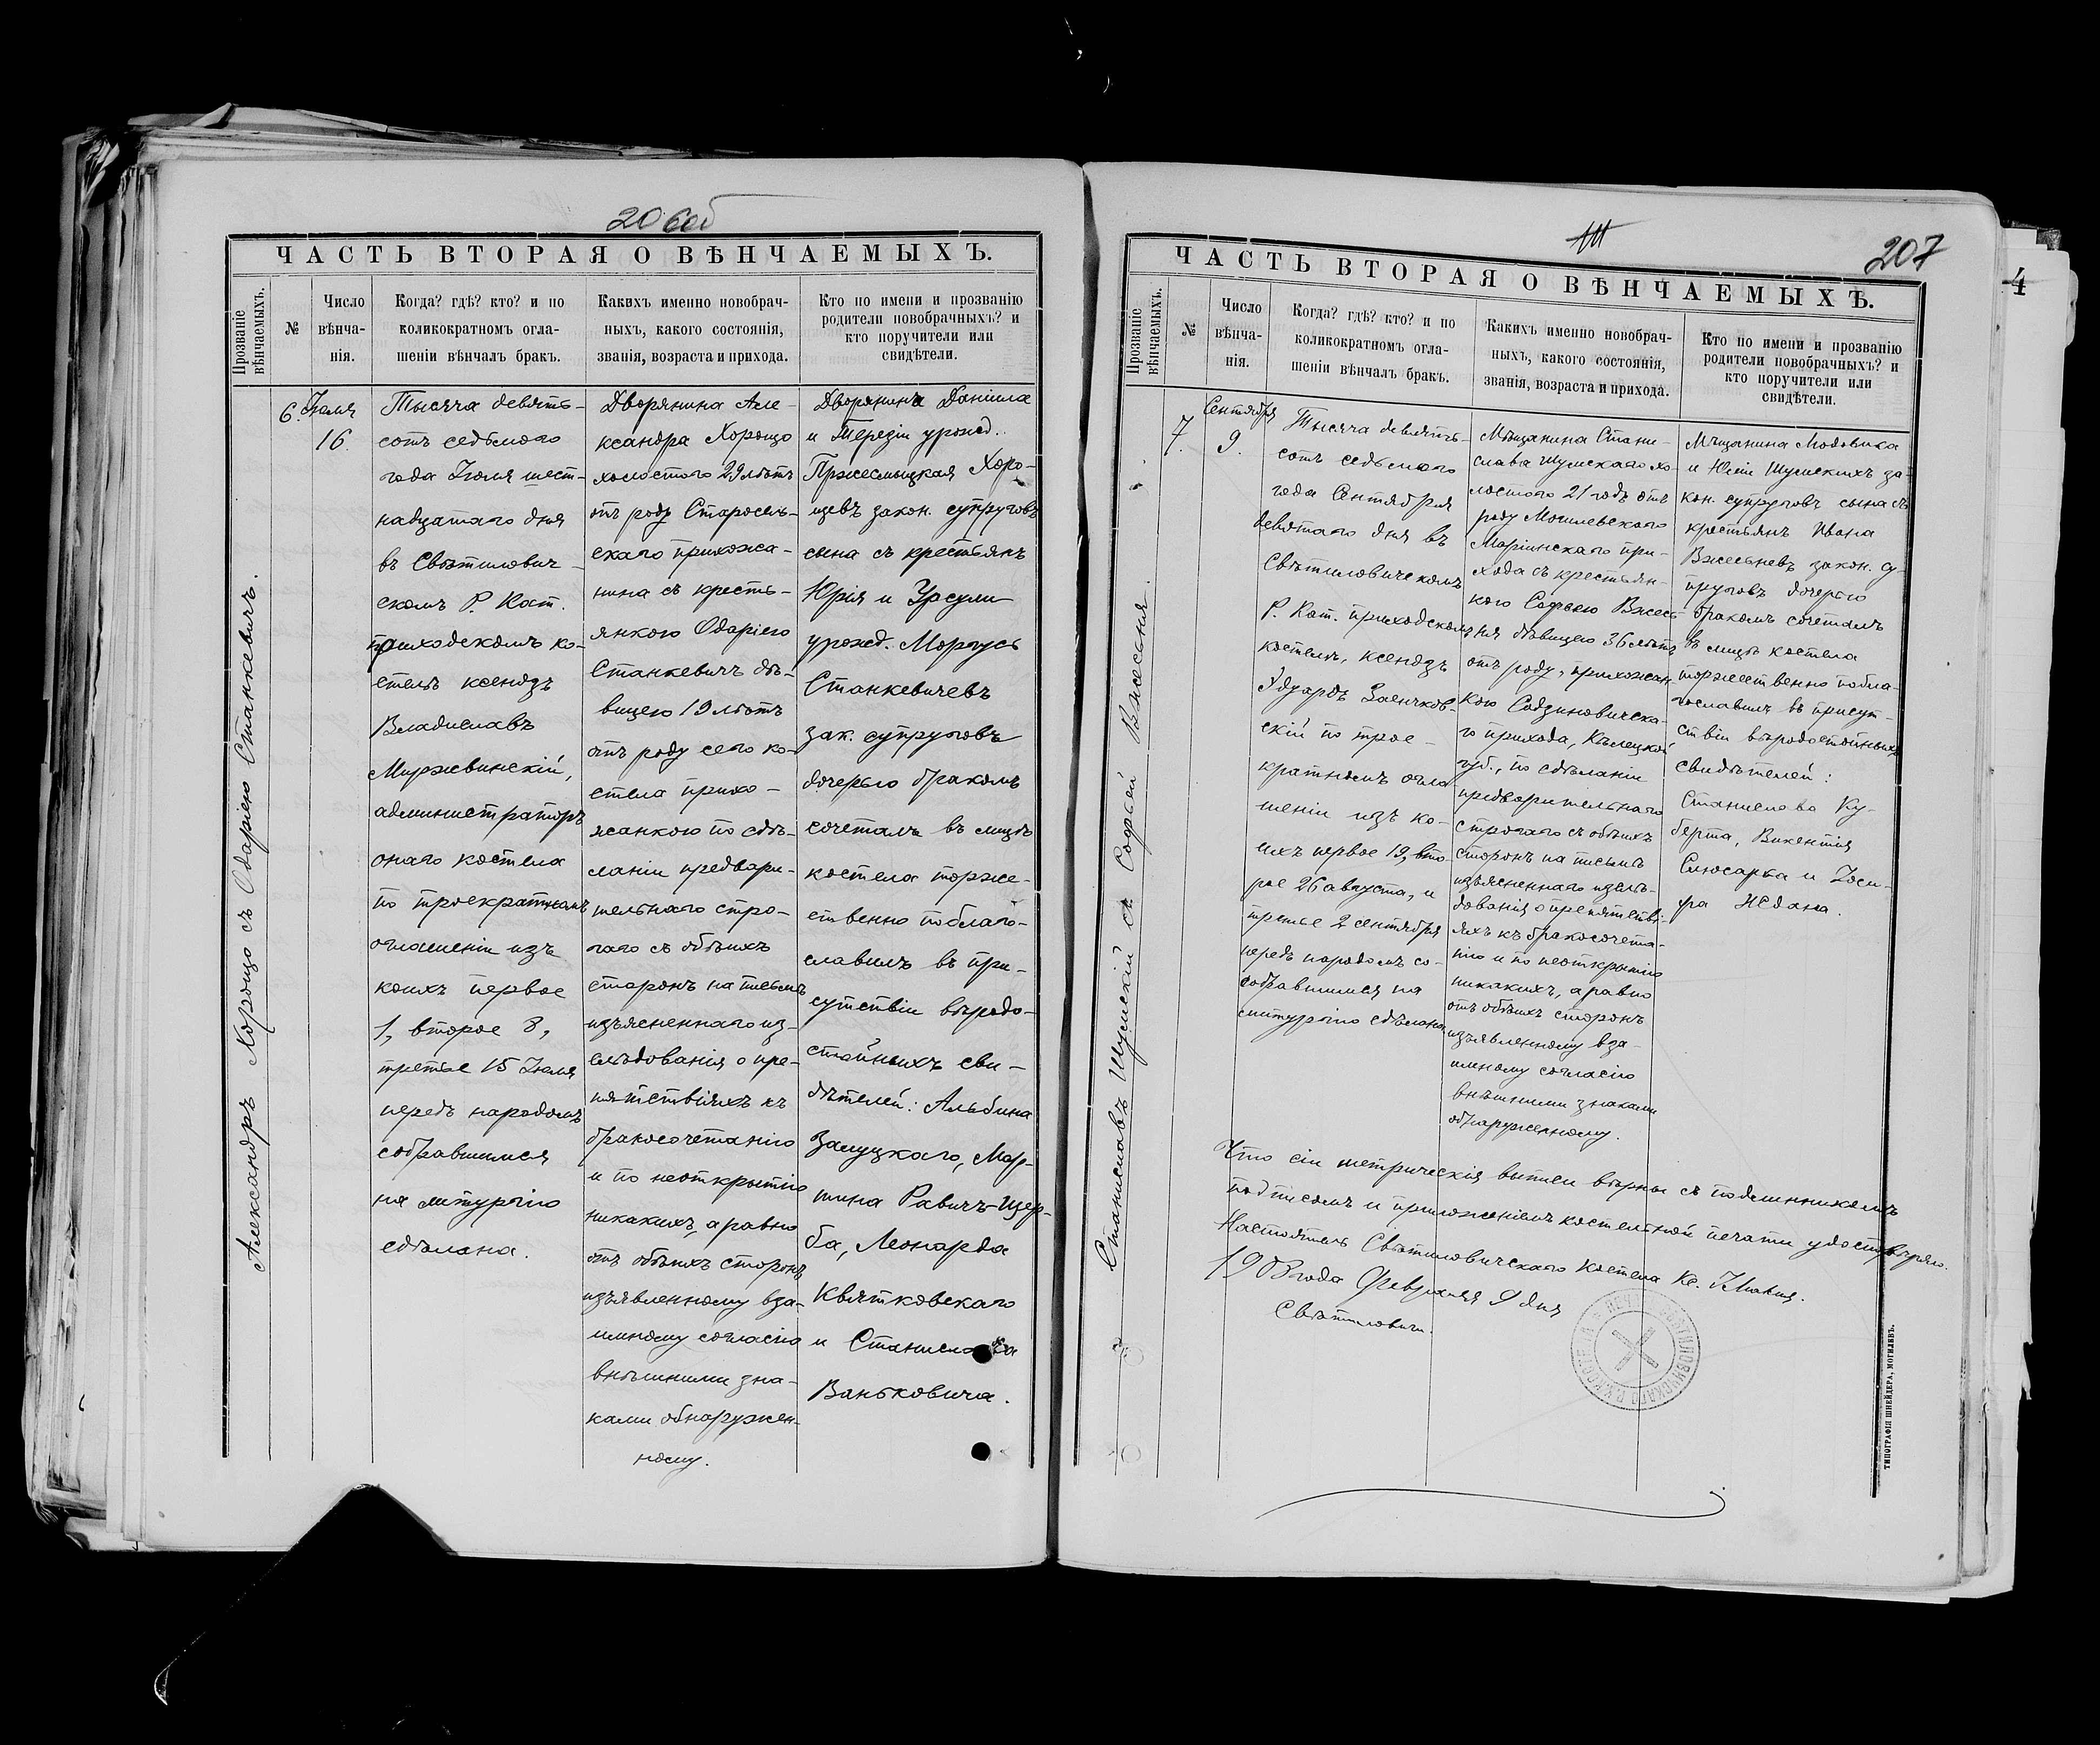 206об
ЧАСТЬ ВТОРАЯ О ВѢНЧАЕМЫХЪ.
Прозваніе вѣнчаемыхъ.
№
Число
вѣнча-
нія.
Когда? гдѣ? кто? и по
коликократномъ огла-
шеніи вѣнчалъ бракъ.
Какихъ именно новобрач-
ныхъ, какого состоянія,
званія, возраста и прихода.
Кто по имени и прозванію
родители новобрачныхъ? и
кто поручители или
свидѣтели.
Александръ Хорощо съ Одаріею Станкевичъ.
6.
Іюля
16.
Тысяча девять-
сотъ седьмого
года Іюля шест-
надцатаго дня
въ Свѣтилович-
скомъ Р. Кат.
приходскомъ ко-
стелѣ ксендзъ
Владиславъ
Мирживинскій,
администраторъ
онаго костела
по троекратномъ
оглашеніи изъ
коихъ первое
1, второе 8,
третье 15 Іюля
передъ народомъ
собравшимся
на литургію
сдѣлана.
Дворянина Але-
ксандра Хорощо
холостого 29 лѣтъ
отъ роду Старосель-
скаго прихожа-
нина съ кресть-
янкою Одаріею
Станкевичъ дѣ-
вицею 19 лѣтъ
отъ роду сего ко-
стела прихо-
жанкою по сдѣ-
ланіи предвари-
тельнаго стро-
гаго съ обѣихъ
сторонъ на письмѣ
изъясненнаго из-
слѣдованія о пре-
пятствіяхъ къ
бракосочетанію
и по неоткрытію
никакихъ, а равно
отъ обѣихъ сторонъ
изъявленному вза-
имному согласію
внѣшними зна-
ками обнаружен-
ному.
Дворянина Даніила
и Терезіи урожд.
Пржесмыцкая Хоро-
щевъ закон. супруговъ
сына съ крестьянъ
Юрія и Урсули
урожд. Моргусь
Станкевичевъ
зак. супруговъ
дочерью бракомъ
сочеталъ въ лицѣ
костела торже-
ственно поблаго-
славилъ въ при-
сутствіи вѣродо-
стойныхъ сви-
дѣтелей: Альбина
Залуцкаго, Мар-
тина Равичъ-Щер-
ба, Леонарда
Квятковскаго
и Станислава
Ваньковича.
207
4
ЧАСТЬ ВТОРАЯ О ВѢНЧАЕМЫХЪ.
Прозваніе вѣнчаемыхъ.
№
Число
вѣнча-
нія.
Когда? гдѣ? кто? и по
коликократномъ огла-
шеніи вѣнчалъ бракъ.
Какихъ именно новобрач-
ныхъ, какого состоянія,
званія, возраста и прихода.
Кто по имени и прозванію
родители новобрачныхъ? и
кто поручители или
свидѣтели.
Станиславъ Шумскій съ Софьей Вжесьня.
7.
Сентября
9.
Тысяча девять-
сотъ седьмого
года Сентября
девятаго дня въ
Свѣтиловичскомъ
Р. Кат. приходскомъ
костелѣ, ксендзъ
Эдуардъ Заенчков-
скій по трое-
кратномъ огла-
шеніи изъ ко-
ихъ первое 19, вто-
рое 26 августа, и
третье 2 сентября
передъ народомъ со-
собравшимся на
литургію сдѣлана
Мѣщанина Стани-
слава Шумскаго хо-
лостого 21 годъ отъ
роду Могилевскаго
Маріинскаго при-
хода съ крестьян-
кою Софьею Вжесь-
ня дѣвицею 36 лѣтъ
отъ роду, прихожан-
кою Садзиновичска-
го прихода, Кѣлецкой
губ., по сдѣланіи
предварительнаго
строгаго съ обѣихъ
сторонъ на письмѣ
изъясненнаго изслѣ-
дованія о препятстві-
яхъ къ бракосочета-
нію и по неоткрытію
никакихъ, а равно
отъ обѣихъ сторонъ
изъявленному вза-
имному согласію
внѣшними знаками
обнаруженному.
Мѣщанина Людовика
и Юліи Шумскихъ за-
кон. супруговъ сына съ
крестьянъ Ивана
Вжесьневъ закон. су-
пруговъ дочерью
бракомъ сочеталъ
въ лицѣ костела
торжественно побла-
гославилъ въ присут-
ствіи вѣродостойныхъ
свидѣтелей:
Станислава Ку-
берта, Викентія
Слюсарка и Іоси-
фа Ждана.
Что сіи метрическія выписи вѣрны съ подлинникомъ
подписомъ и приложеніемъ костельной печати удостовѣряю.
Настоятель Свѣтиловичскаго Костела Кс.
1908 года Февраля 9 дня
Свѣтиловичи.
ТИПОГРАФІЯ ШНЕЙДЕРА, МОГИЛЕВЪ.